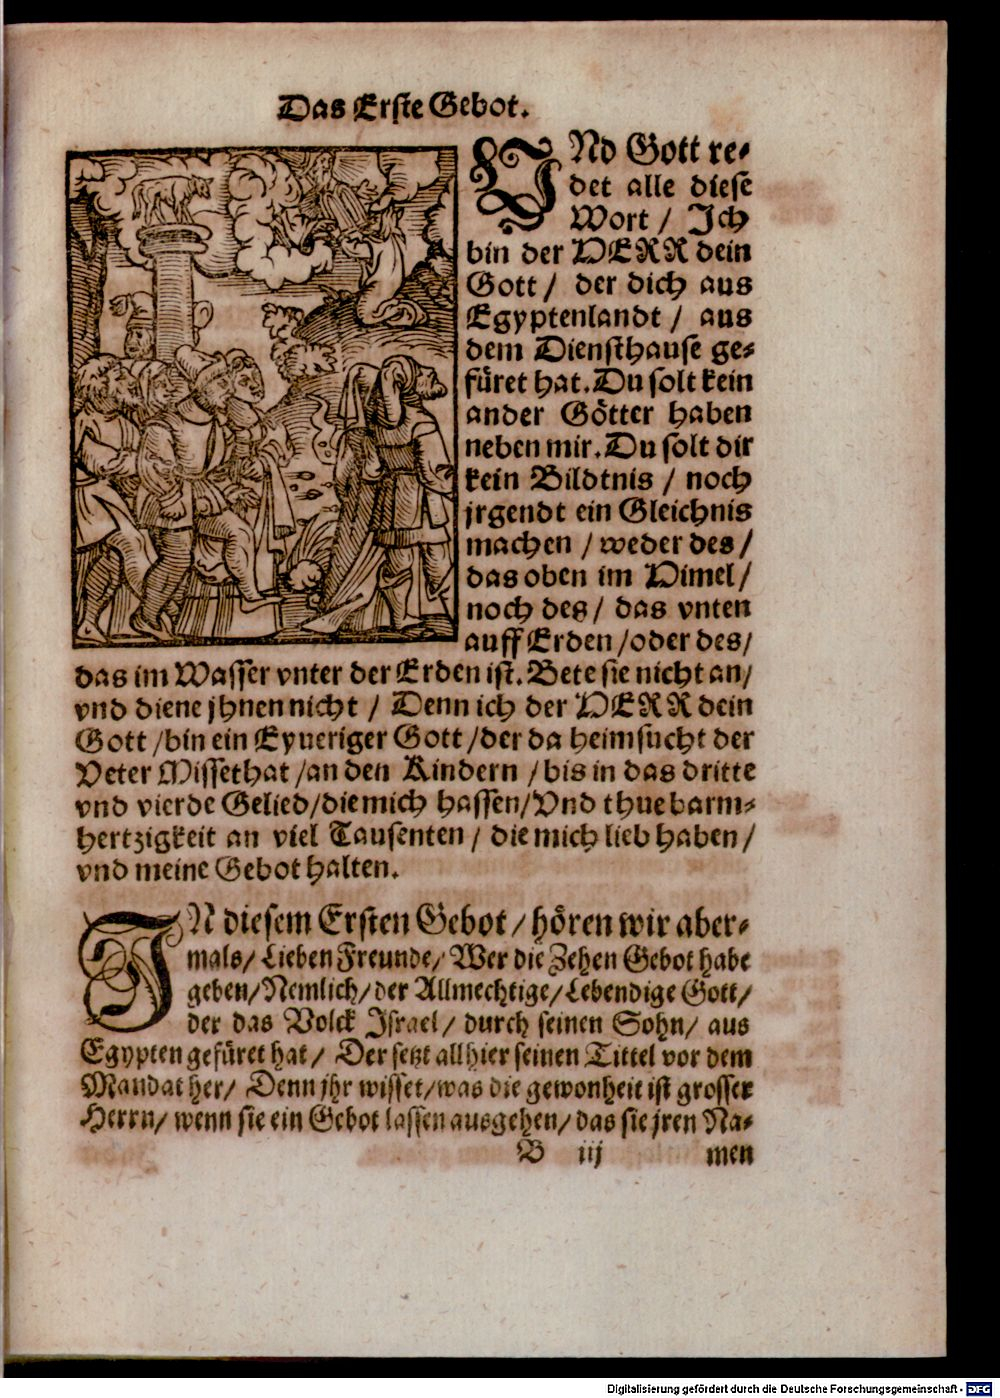 Das Erste Gebot.
VNd Gott re-
det alle diese
Wort / Ich
bin der HERR dein
Gott / der dich aus
Egyptenlandt / aus
dem Diensthause ge-
füret hat. Du solt kein
ander Götter haben
neben mir. Du solt dir
kein Bildtnis / noch
jrgendt ein Gleichnis
machen / weder des /
das oben im Himel /
noch des / das vnten
auff Erden / oder des /
das im Wasser vnter der Erden ist. Bete sie nicht an /
vnd diene jhnen nicht / Denn ich der HERR dein
Gott / bin ein Eyueriger Gott / der da heimsucht der
Veter Missethat / an den Kindern / bis in das dritte
vnd vierde Gelied / die mich hassen / Vnd thue barm-
hertzigkeit an viel Tausenten / die mich lieb haben /
vnd meine Gebot halten.
IN diesem Ersten Gebot / hören wir aber-
mals / Lieben Freunde / Wer die Zehen Gebot habe
geben / Nemlich / der Allmechtige / Lebendige Gott /
der das Volck Israel / durch seinen Sohn / aus
Egypten gefüret hat / Der setzt allhier seinen Tittel vor dem
Mandat her / Denn jhr wisset / was die gewonheit ist grosser
Herrn / wenn sie ein Gebot lassen ausgehen / das sie jren Na-
B iij men
Digitalisierung gefördert durch die Deutsche Forschungsgemeinschaft - DFG